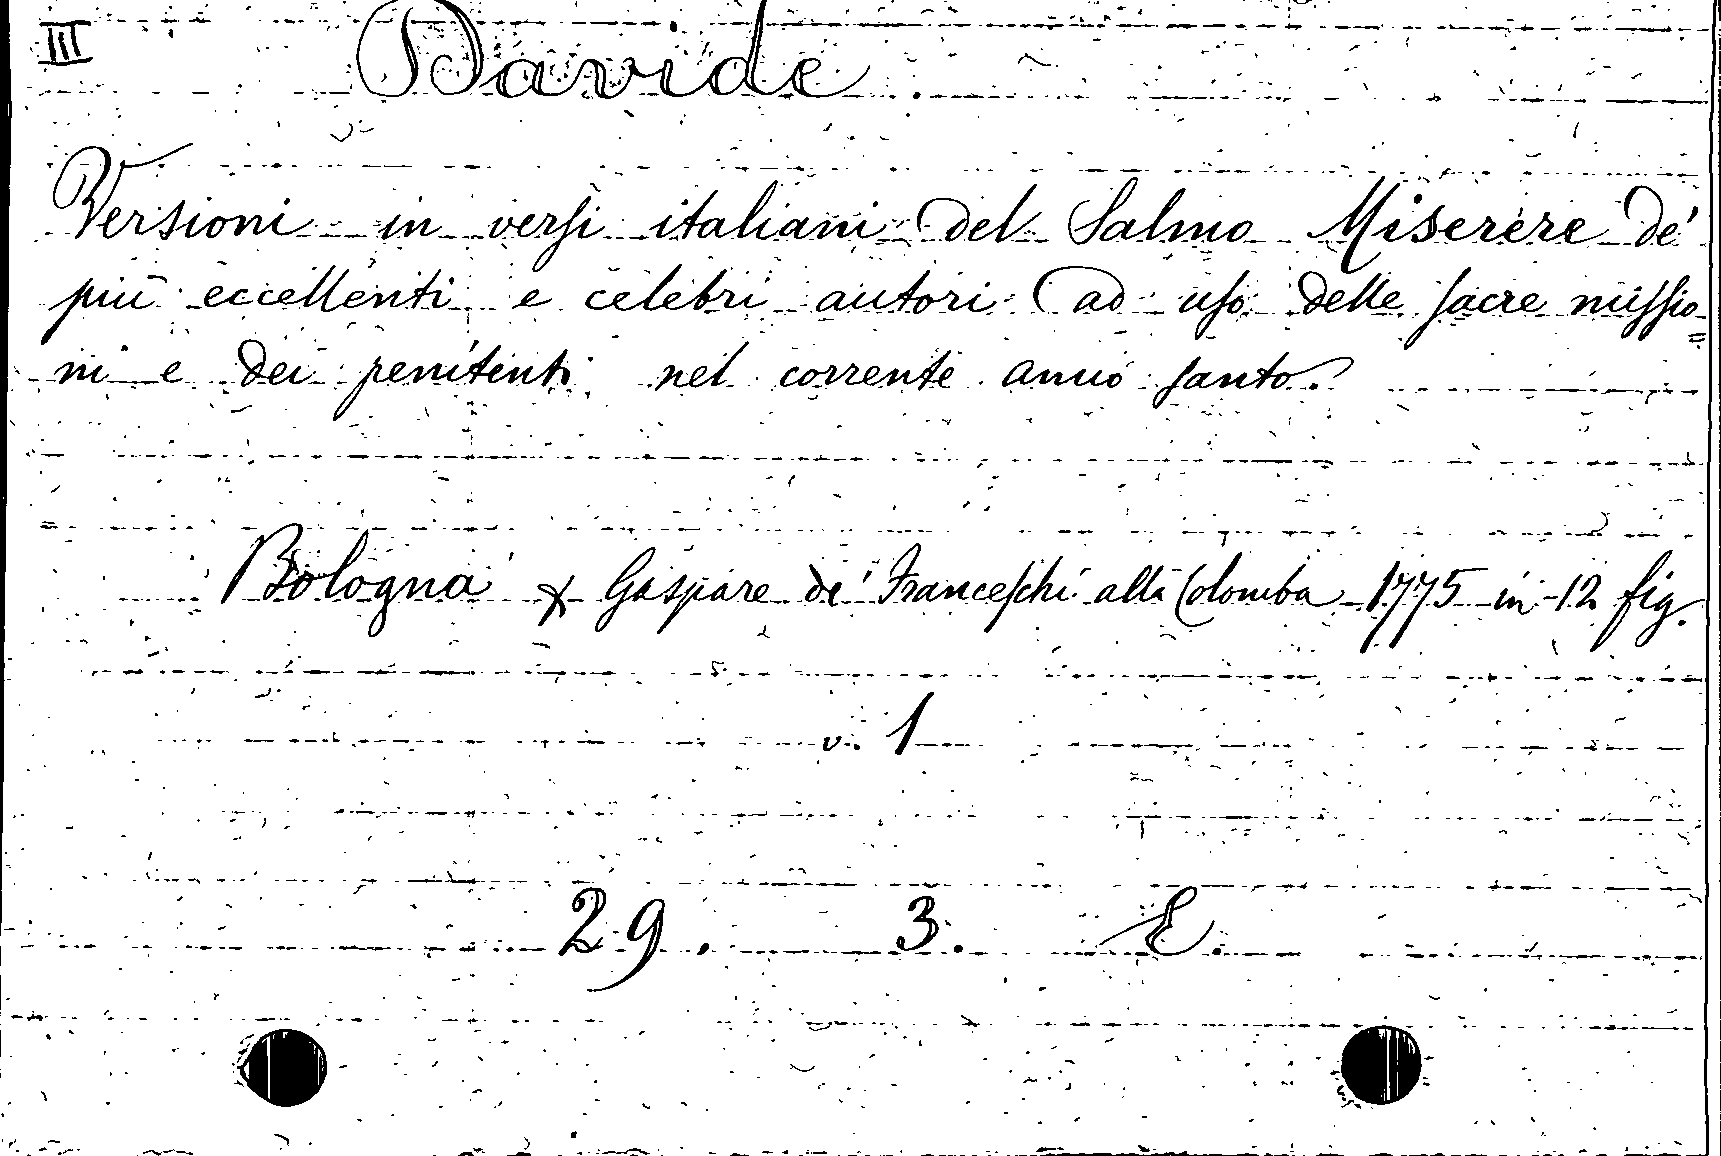 III
Davide.
Versioni in versi italiani del Salmo Miserere de'
più eccellenti e celebri autori ad uso delle sacre missio=
ni e dei penitenti nel corrente anno santo.
Bologna x Gaspare de' Franceschi alla Colomba 1775 in-12 fig.
v. 1
29. 3. E.